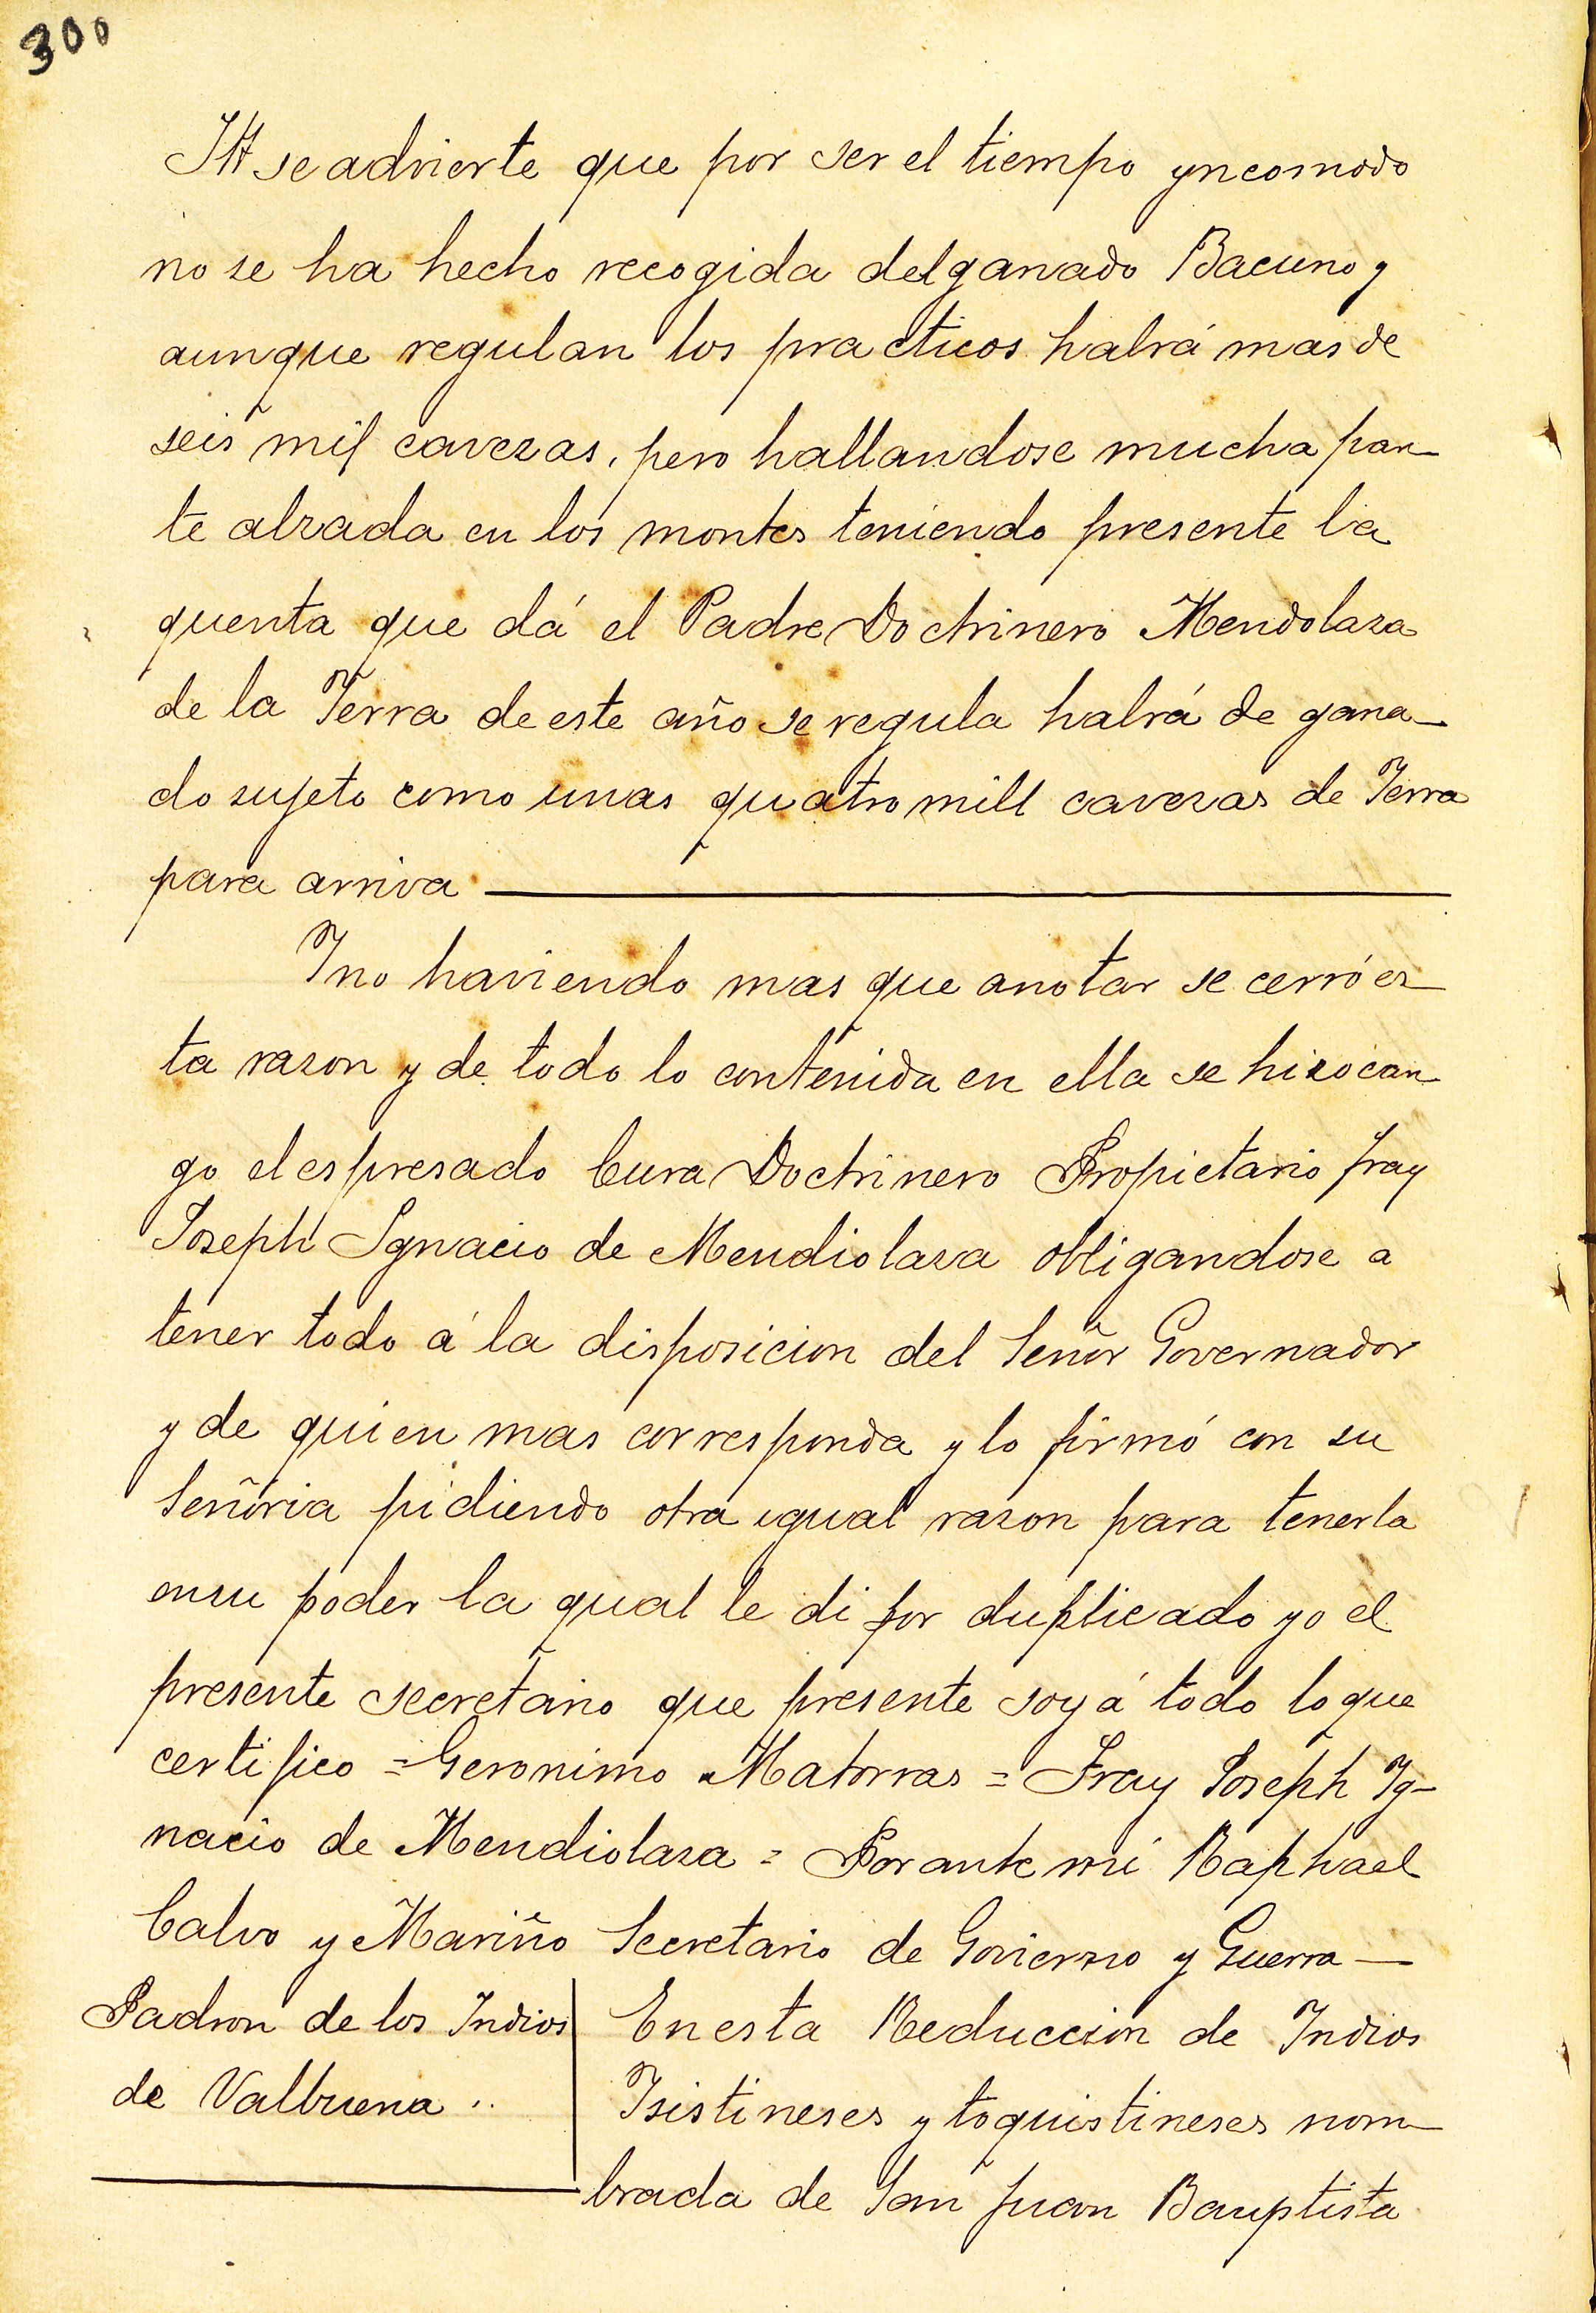 300
Itt se advierte que por ser el tiempo yncomodo
no se ha hecho recogida del ganado Bacuno y
aunque regulan los practicos habrá mas de
seis mil cavezas, pero hallandose mucha par-
te alzada en los montes teniendo presente la
quenta que dá el Padre Doctrinero Mendolaza
de la Yerra de este año se regula habrá de gana-
do sujeto como unas quatro mill cavezas de Yerra
para arriva
Y no haviendo mas que anotar se cerró es-
ta razon y de todo lo contenida en ella se hizo car-
go el espresado Cura Doctrinero Propietario fray
Joseph Ignacio de Mendiolaza obligandose a
tener todo á la disposicion del Señor Governador
y de quien mas corresponda y lo firmó con su
Señoria pidiendo otra igual razon para tenerla
en su poder la qual le di por duplicado yo el
presente secretario que presente soy á todo lo que
certifico = Geronimo Matorras = Fray Joseph Ig-
nacio de Mendiolaza = Por ante mi Raphael
Calvo y Mariño Secretario de Govierno y Guerra —
Padron de los Indios
de Valbuena ..
En esta Reduccion de Indios
Isistineses y toquistineses nom-
brada de San Juan Bauptista